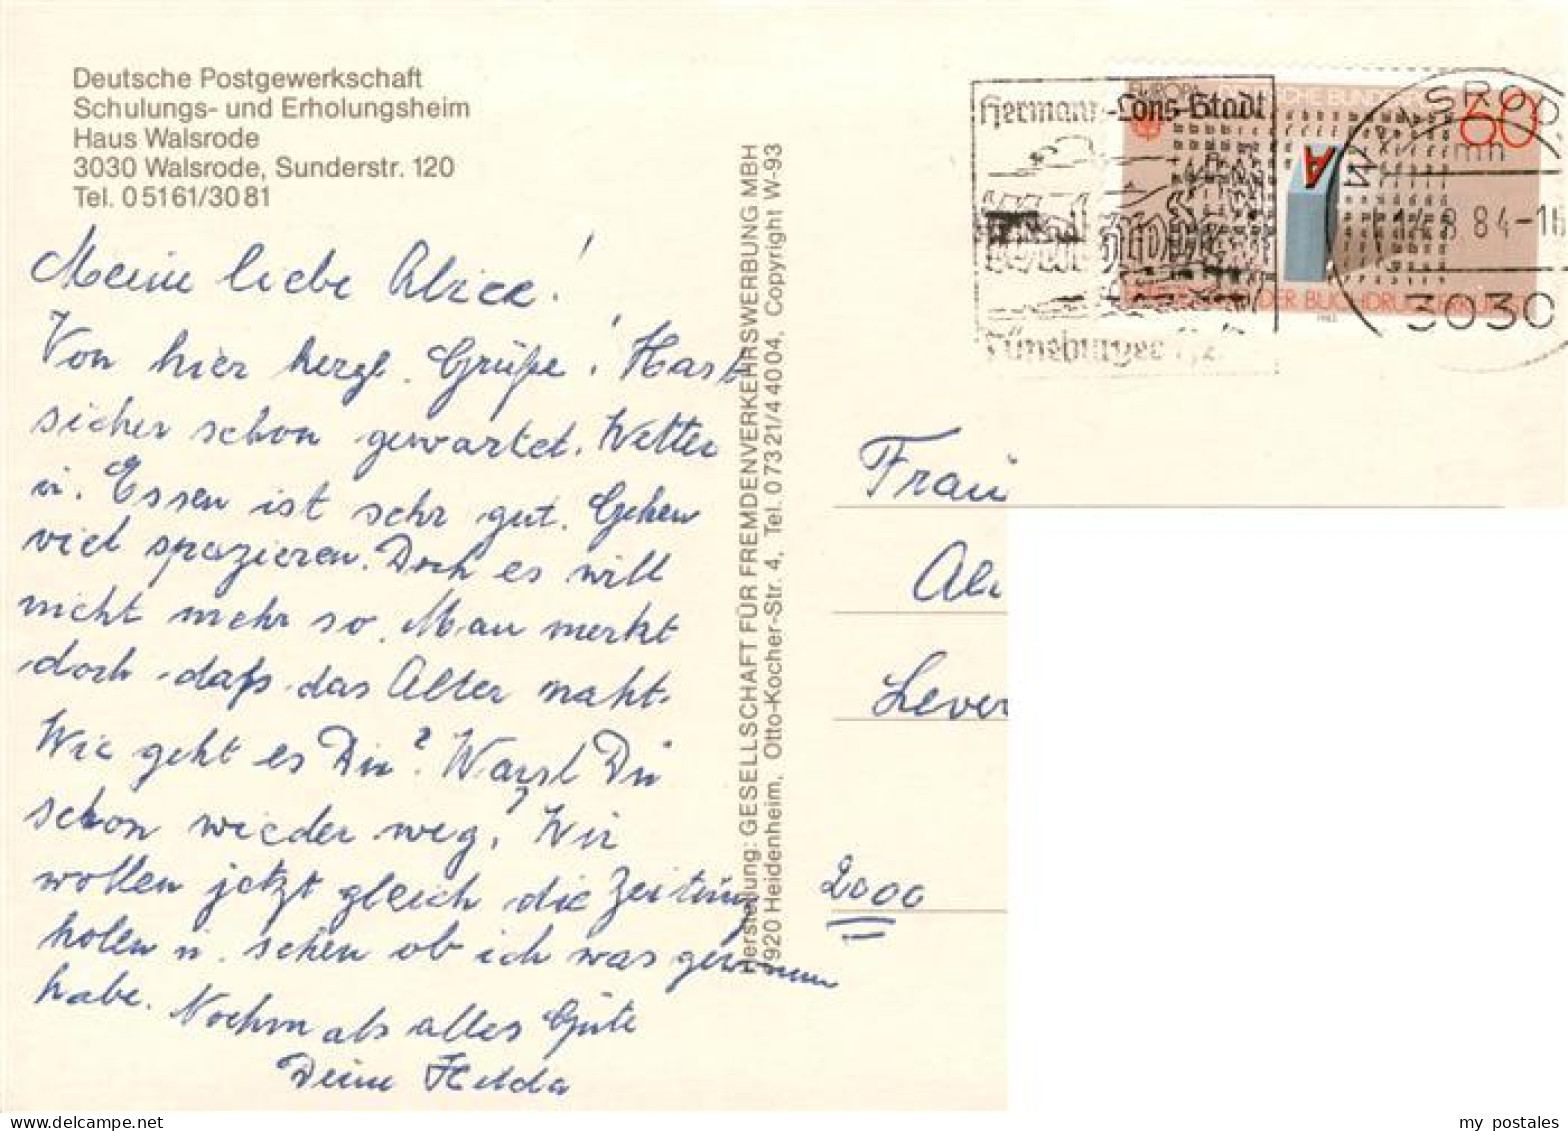 Deutsche Postgewerkschaft
Schulungs- und Erholungsheim
Haus Walsrode
3030 Walsrode, Sunderstr. 120
Tel. 05161/3081
Meine liebe Alice!
Von hier herzl. Grüße! Hast
sicher schon gewartet. Wetter
u. Essen ist sehr gut. Gehen
viel spazieren. Doch es will
nicht mehr so. Man merkt
doch daß das Alter naht.
Wie geht es Dir? Warst Du
schon wieder weg? Wir
wollen jetzt gleich die Zeitung
holen u. sehen ob ich was gewonnen
habe. Nochmals alles Gute
Deine Hilda
Herstellung: GESELLSCHAFT FÜR FREMDENVERKEHRSWERBUNG MBH
7920 Heidenheim, Otto-Kocher-Str. 4, Tel. 07321/44004, Copyright W-93
Hermann-Löns-Stadt
Walsrode
Lüneburger
EUROPA DEUTSCHE BUNDESPOST
60
A
DER BUCHDRUCKERKUNST
1983
WALSRODE
mn
14.8.84-16
3030
Frau
Ali
Lever
2000
my postales